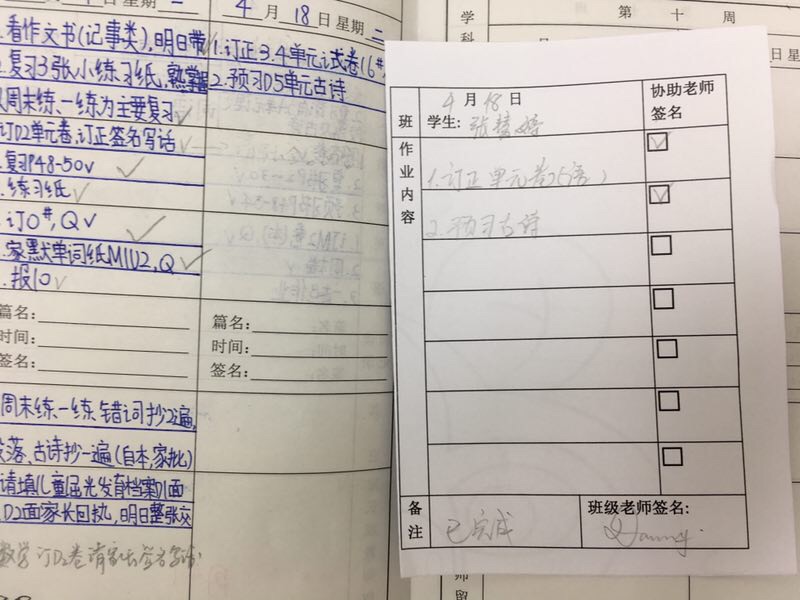 月 日 星期 一
.看作文书(记事类),明日带
.复习3张小练习纸,熟掌握
周末练、一练为主要复习√
订D2单元卷,订正签名写话√
.复习P48-50√
.练习纸√
.订0#,Q√
.家默单词纸M1U2,Q√
.报10√
篇名:
时间:
签名:
周末练、一练 错词抄2遍,
段落、古诗抄一遍(自本,家批)
请填儿童屈光发育档案D1面
D2面家长回执,明日整张交
数学 订D2卷 请家长签名
4月18日 星期二
1.订正3.4单元试卷(6#
2.预习D5单元古诗
篇名:
时间:
签名:
学科
第 十 周
班
4月18日
学生:
协助老师签名
作业内容
1.订正单元卷(语)
2.预习古诗
备注
已完成
班级老师签名:
师留